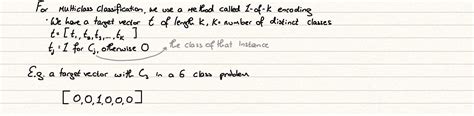 For Multiclass Classification, we use a method called 1-of-K encoding
· We have a target vector t of length K, K = number of distinct classes
t = [t₁, t₂, t₃, ..., tₖ]
tⱼ = 1 for Cⱼ, otherwise 0 the class of that instance
E.g. a target vector with C₃ in a 6 class problem
[0,0,1,0,0,0]